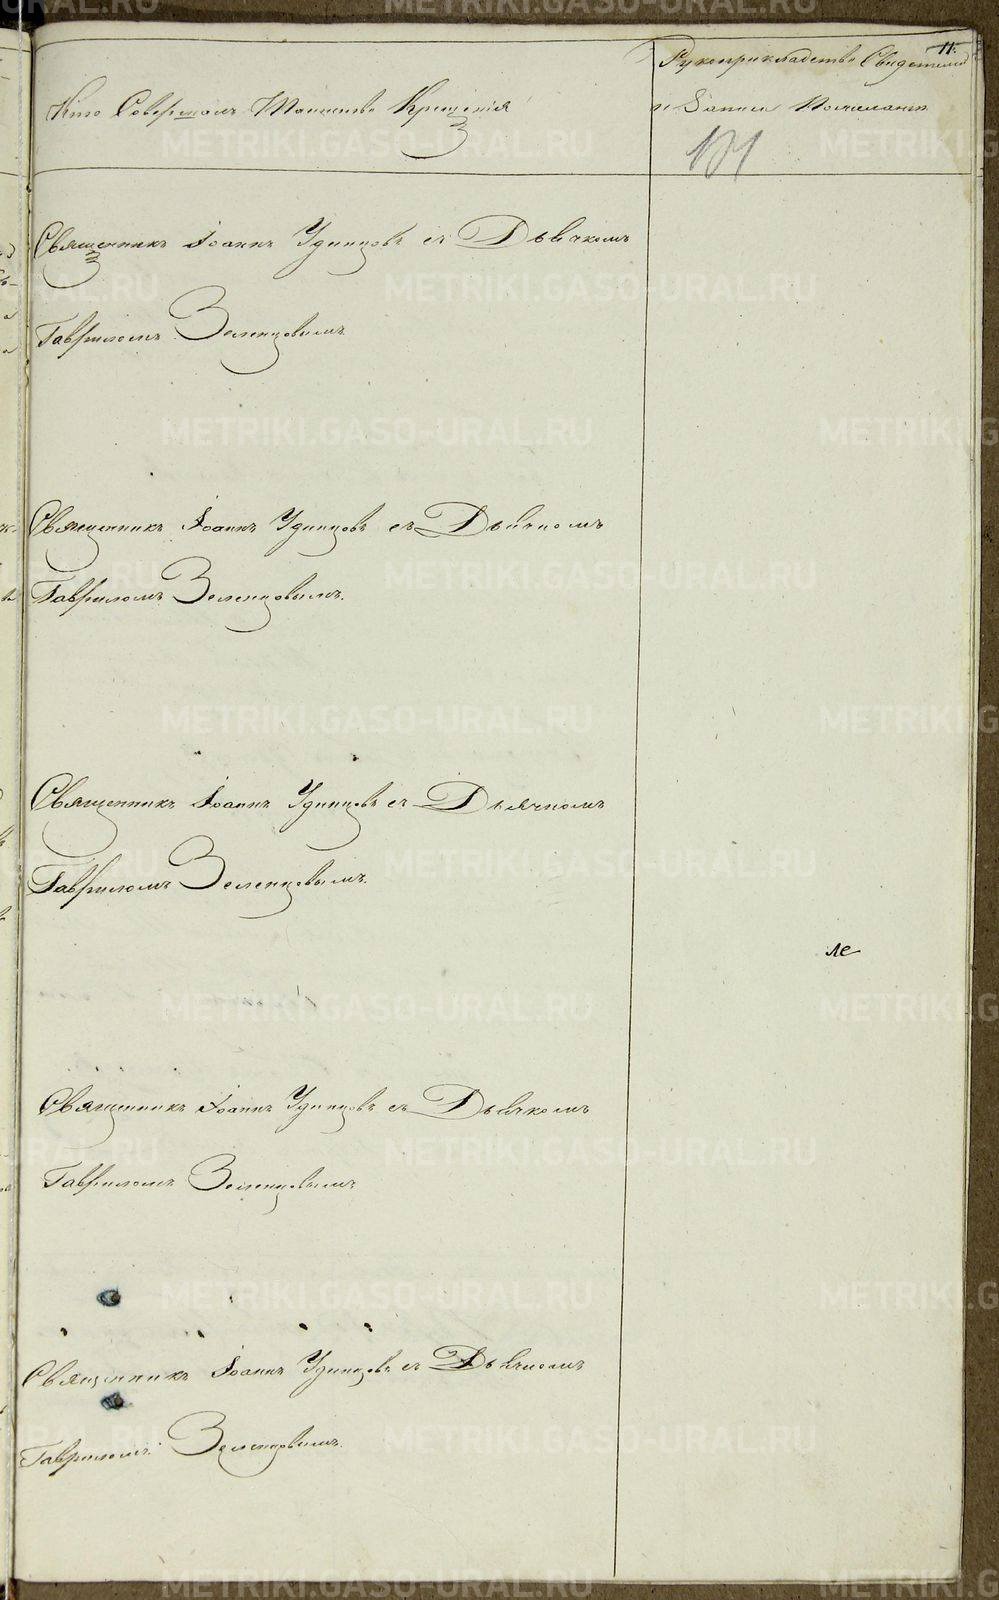 11.
Рукоприкладство Свидетелей
Кто Совершалъ Таинство Крещенія
и Записи По желанію
101
Священникъ Іоаннъ Удинцовъ съ Дьячкомъ
Гавриломъ Зеленцовымъ
Священникъ Іоаннъ Удинцовъ съ Дьячкомъ
Гавриломъ Зеленцовымъ.
Священникъ Іоаннъ Удинцовъ съ Дьячкомъ
Гавриломъ Зеленцовымъ.
ле
Священникъ Іоаннъ Удинцовъ съ Дьячкомъ
Гавриломъ Зеленцовымъ
Священникъ Іоаннъ Удинцовъ съ Дьячкомъ
Гавриломъ Зеленцовымъ.
METRIKI.GASO-URAL.RU